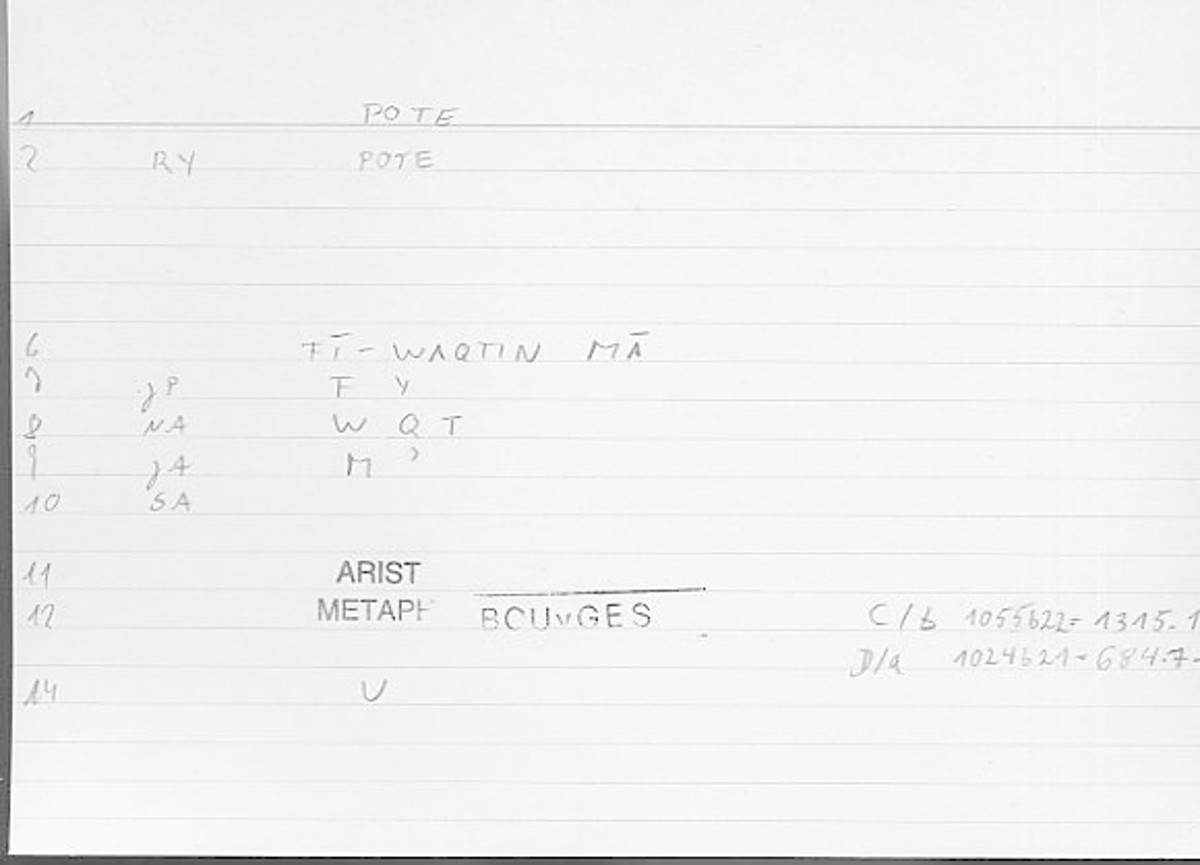 1 POTE
2 RY POTE
6 FĪ-WAQTIN MĀ
7 jP F Y
8 NA W Q T
9 jA M ʾ
10 SA
11 ARIST
12 METAPH BOUYGES C/b 1055b22=1315.1
D/a 1024b21=684.7-
14 V